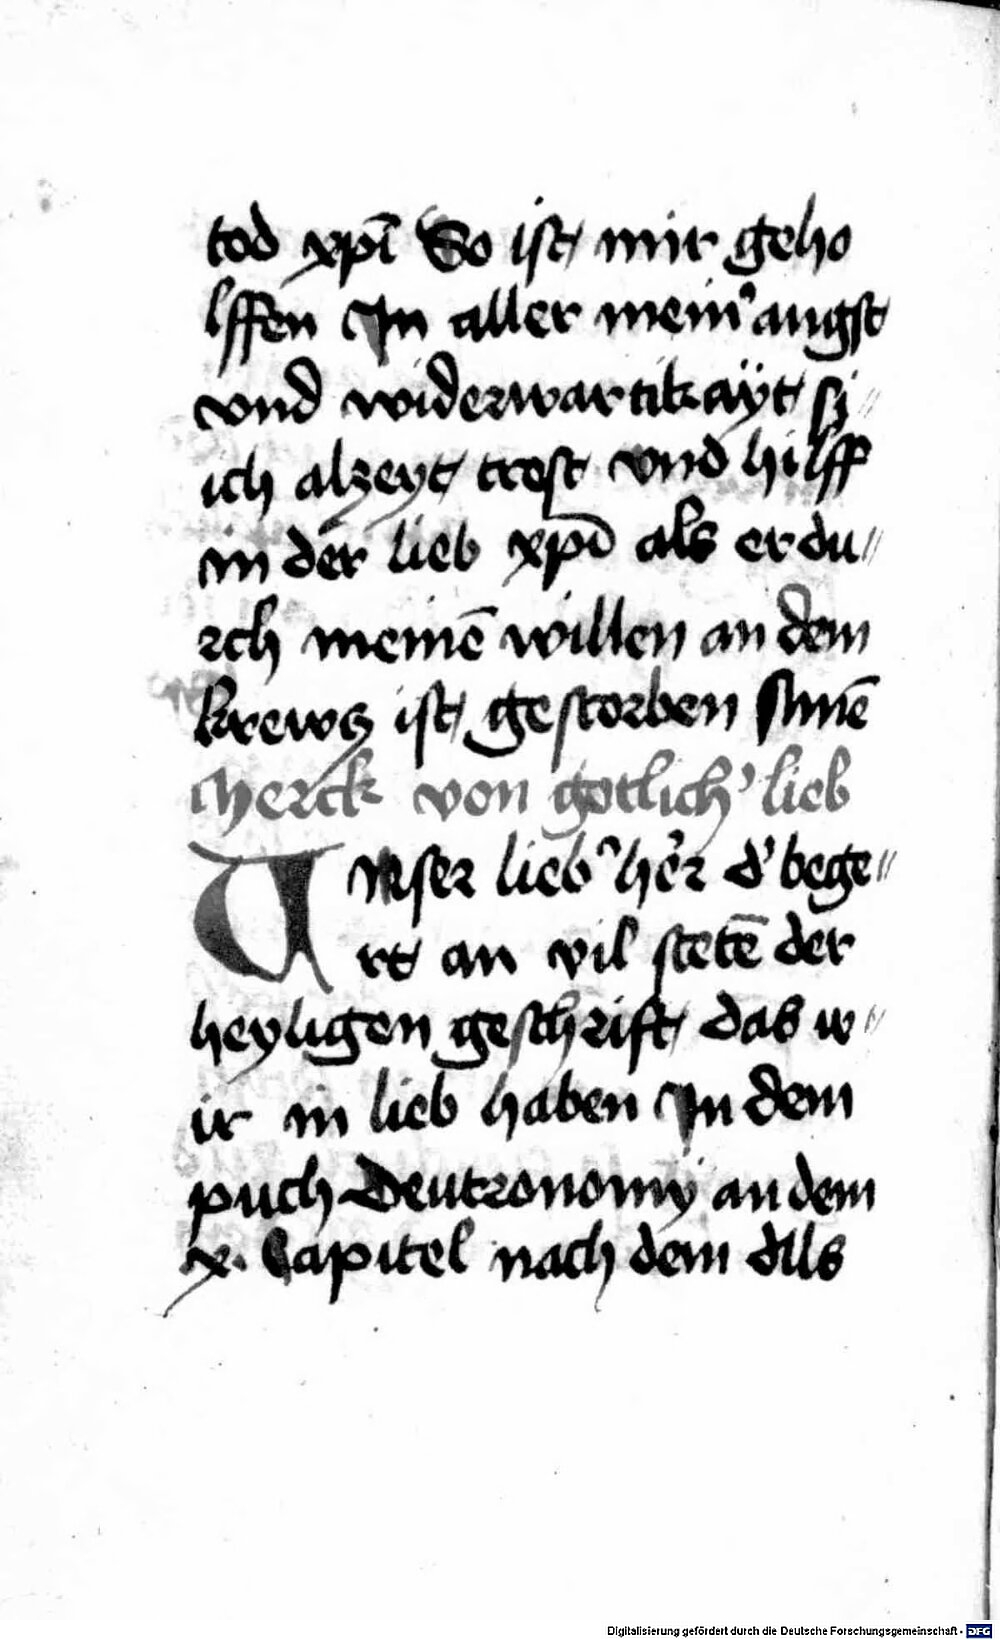 tod xp̄i So ist mir geho
lffen Jn aller mein᾽ angst
vnd widerwartikaÿt si〃
ich alzeyt trost vnd hilff
in der lieb xp̄i als er du〃
rch meinē willen an dem
krewcz ist gestorben Amē
Merck von gotlich᾽ lieb
Vnser lieb᾽ he᾽r d᾽ bege〃
rt an vil stetē der
heyligen geschrift das w〃
ir in lieb haben Jn dem
puch Deutronomij an dem
x. Capitel nach dem Als
Digitalisierung gefördert durch die Deutsche Forschungsgemeinschaft - DFG